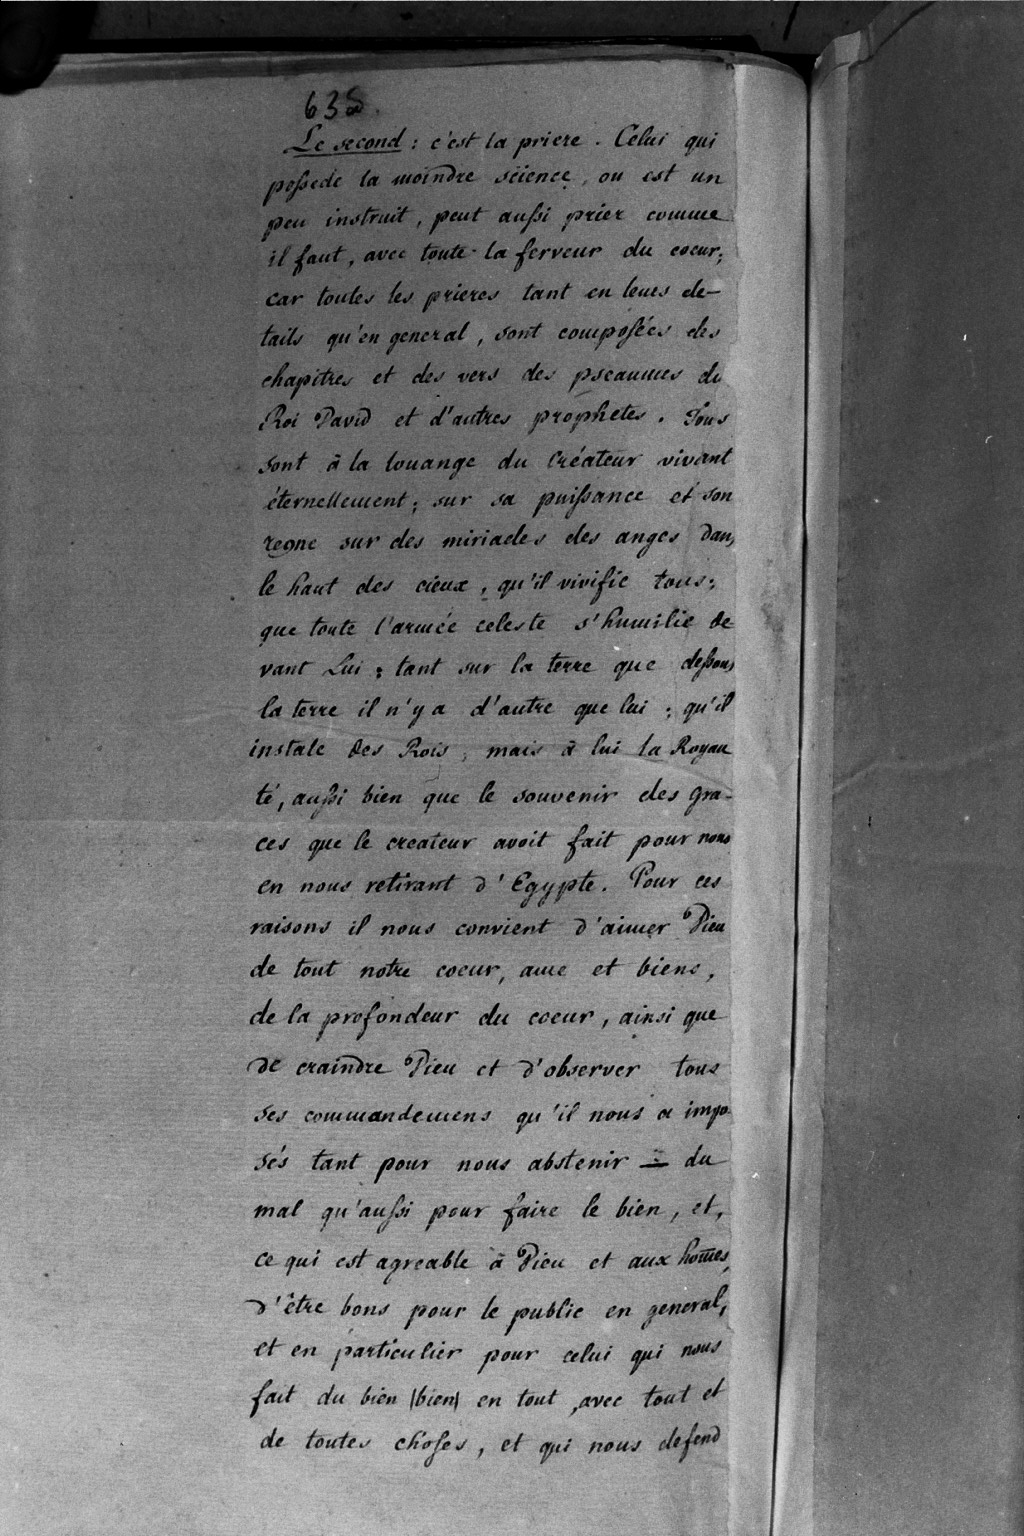 635.
Le second : c'est la priere . Celui qui
possede la moindre sciience , ou est un
peu instruit , peut aussi prier comme
il faut , avec toute la ferveur du coeur ;
car toutes les prieres tant en leurs de-
tails qu'en general , sont composées des
chapitres et des vers des pseaumes du
Roi David et d'autres prophetes . Tous
sont à la louange du Créateur vivant
éternellement ; sur sa puissance et son
regne sur des miriades des anges dans
le haut des cieux , qu'il vivifie tous ;
que toute l'armée celeste s'humilie de
vant Lui ; tant sur la terre que dessous
la terre il n'y a d'autre que lui ; qu'il
instale des Rois , mais à lui la Royau
té , aussi bien que le souvenir des gra-
ces que le createur avoit fait pour nous
en nous retirant d'Egypte . Pour ces
raisons il nous convient d'aimer Dieu
de tout notre coeur , ame et biens ,
de la profondeur du coeur , ainsi que
de craindre Dieu et d'observer tous
ses commandemens qu'il nous a impo
sés tant pour nous abstenir du
mal qu'aussi pour faire le bien , et ,
ce qui est agreable à Dieu et aux hom̄es ,
d'être bons pour le public en general ,
et en particulier pour celui qui nous
fait du bien |bien| en tout , avec tout et
de toutes choses , et qui nous defend